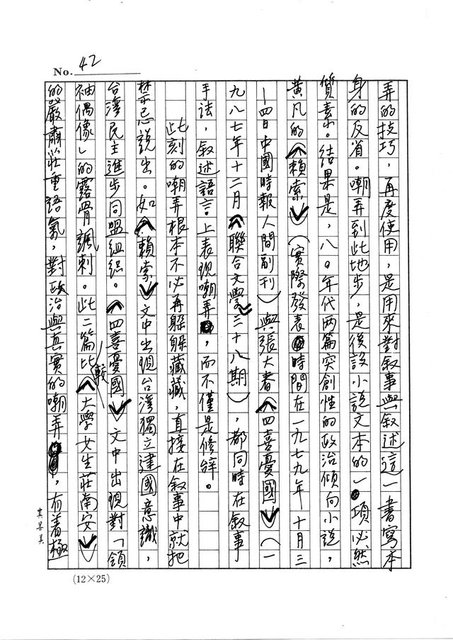 No. 42
弄的技巧，再度使用，是用來對敘事與敘述這一書寫本
身的反省。嘲弄到此地步，是後設小說文本的一項必然
質素。結果是，八〇年代兩篇突創性的政治傾向小說，
黃凡的《賴索》（實際發表時間在一九七九年十月三
—四日中國時報人間副刊）與張大春《四喜憂國》（一
九八七年十二月《聯合文學》三十八期），都同時在敘事
手法，敘述語言上表現嘲弄，而不僅是修辭。
此刻的嘲弄根本不必再躲躲藏藏，直接在敘事中就把
禁忌說出。如《賴索》文中出現台灣獨立建國意識，
台灣民主進步同盟組織。《四喜憂國》文中出現對「領
袖偶像」的露骨諷刺。此二篇比較《大學女生莊南安》
的嚴肅莊重語氣，對政治與真實的嘲弄，有著極
(12×25)